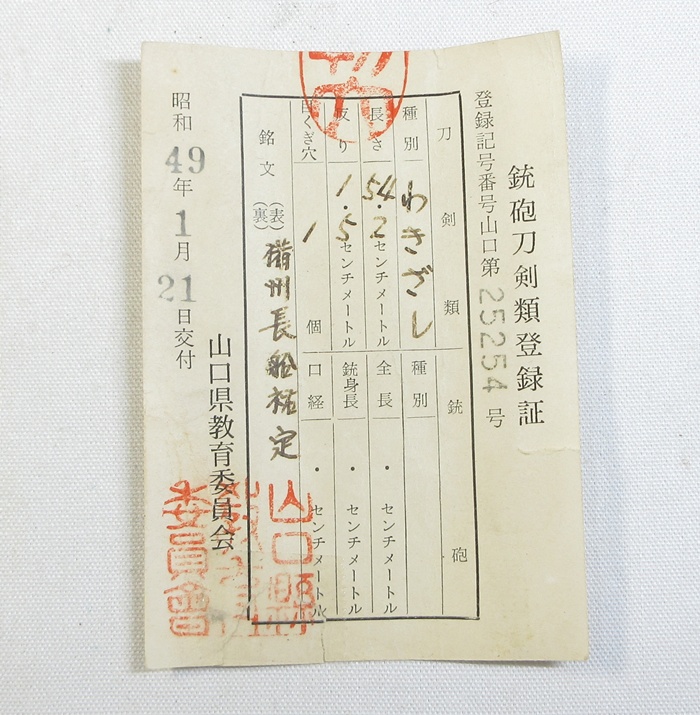 銃砲刀剣類登録証
登録記号番号山口第25254号
刀剣類
銃砲
種別 わきざし
種別
長さ 54.2センチメートル
全長 ・ センチメートル
反り 1.5センチメートル
銃身長 ・ センチメートル
目くぎ穴 1 個
口経 ・ センチメートル
銘文 (表)(裏) 備州長船祐定
山口県教育委員会
昭和49年1月21日交付
山口県
委員會